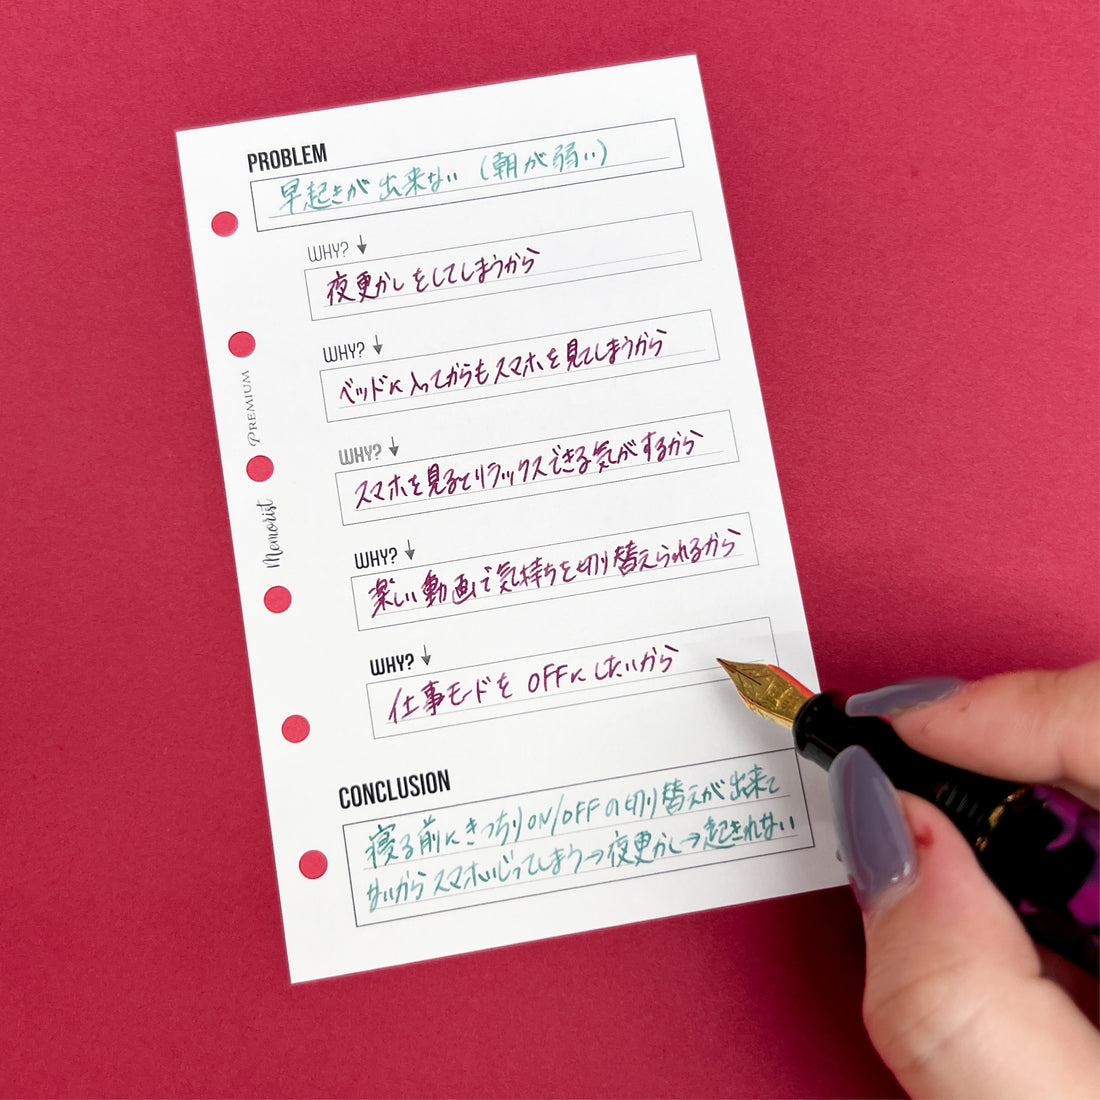 PROBLEM
早起きが出来ない（朝が弱い）
WHY? ↓
夜更かしをしてしまうから
WHY? ↓
ベッドに入ってからもスマホを見てしまうから
WHY? ↓
スマホを見るとリラックスできる気がするから
WHY? ↓
楽しい動画で気持ちを切り替えられるから
WHY? ↓
仕事モードをOFFにしたいから
CONCLUSION
寝る前にきっちりON/OFFの切り替えが出来て
ないからスマホいじってしまう→夜更かし→起きれない
Memorist PREMIUM